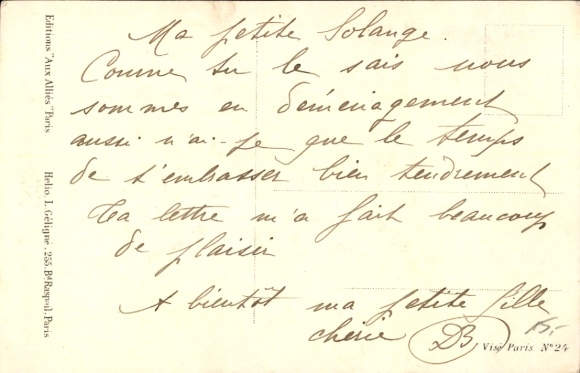 Ma petite Solange.
Comme tu le sais nous
sommes en déménagement
aussi n'ai-je que le temps
de t'embrasser bien tendrement
Ta lettre m'a fait beaucoup
de plaisir
A bientôt ma petite fille
chérie DB
15.-
Editions "Aux Alliés" Paris
Helio. L. Géligné. 255, Bd Raspail, Paris
Visé Paris No 24